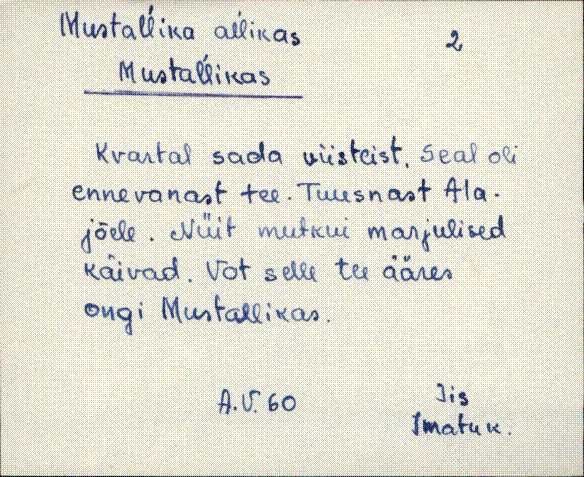 Mustal'l'ika al'likas
2
Mustal'l'ikas
Kvartal sada viisteist. Seal oli
ennevanast tee. Tuusnast Ala-
jõele. Nüit mutkui marjulised
käivad. Vot selle tee ääres
ongi Mustallikas.
A.V. 60
Iis
Imatu k.